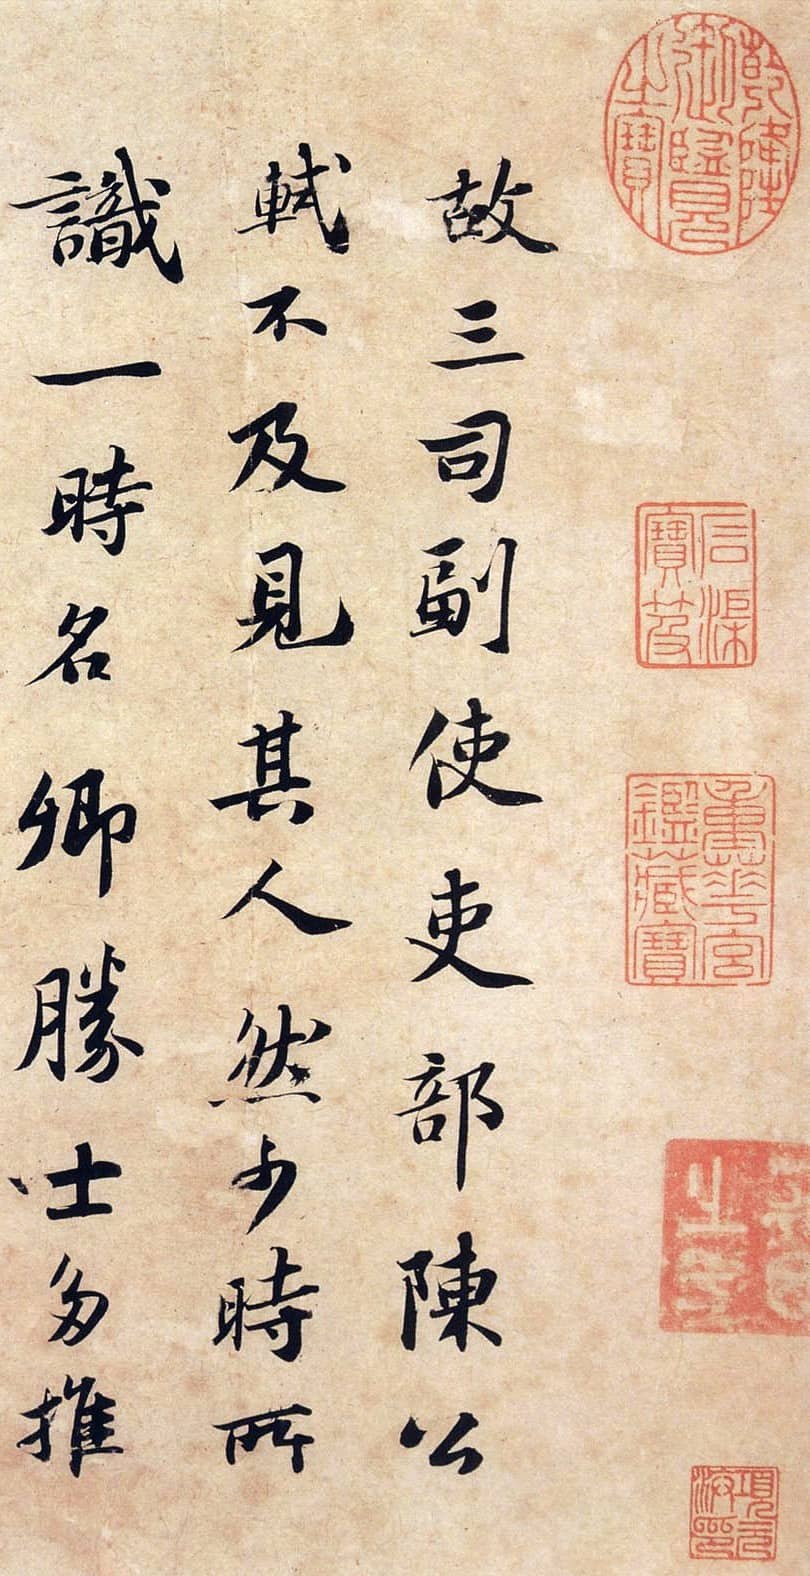 故三司副使吏部陳公
軾不及見其人然少時所
識一時名卿勝士多推
乾隆御覽之寶
石渠寶笈
重華宮鑑藏寶